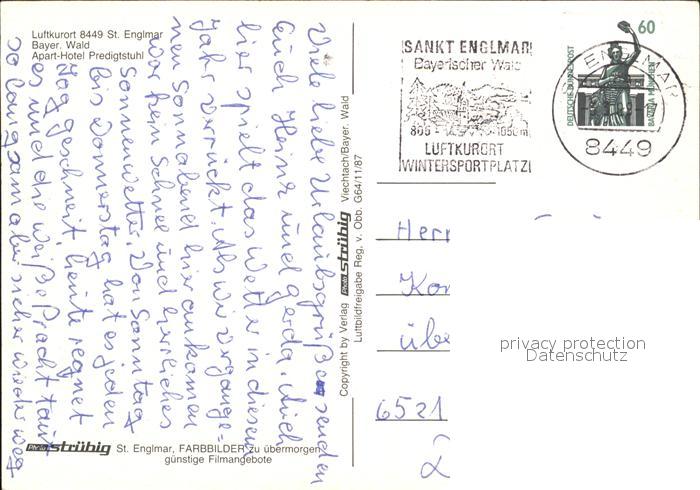 Luftkurort 8449 St. Englmar
Bayer. Wald
Apart-Hotel Predigtstuhl
Viele liebe Urlaubsgrüße senden
Euch Heinz und Gerda. Auch
hier spielt das Wetter in diesem
Jahr verrückt. Als wir vergange=
nen Sonnabend hier ankamen
war kein Schnee und herrliches
Sonnenwetter. Von Sonntag
bis Donnerstag hat es jeden
Tag geschneit, heute regnet
es und die weiße Pracht taut
so langsam aber sicher wieder weg
Photo strübig St. Englmar, FARBBILDER zu übermorgen
günstige Filmangebote
Copyright by Verlag Photo strübig Viechtach/Bayer. Wald
Luftbildfreigabe Reg. v. Obb. G64/11/87
SANKT ENGLMAR
Bayerischer Wald
1050m
LUFTKURORT
WINTERSPORTPLATZ
60
DEUTSCHE BUNDESPOST
BAVARIA MÜNCHEN
ENGLMAR
8449
Herr
Kor
übe
6521
privacy protection
Datenschutz